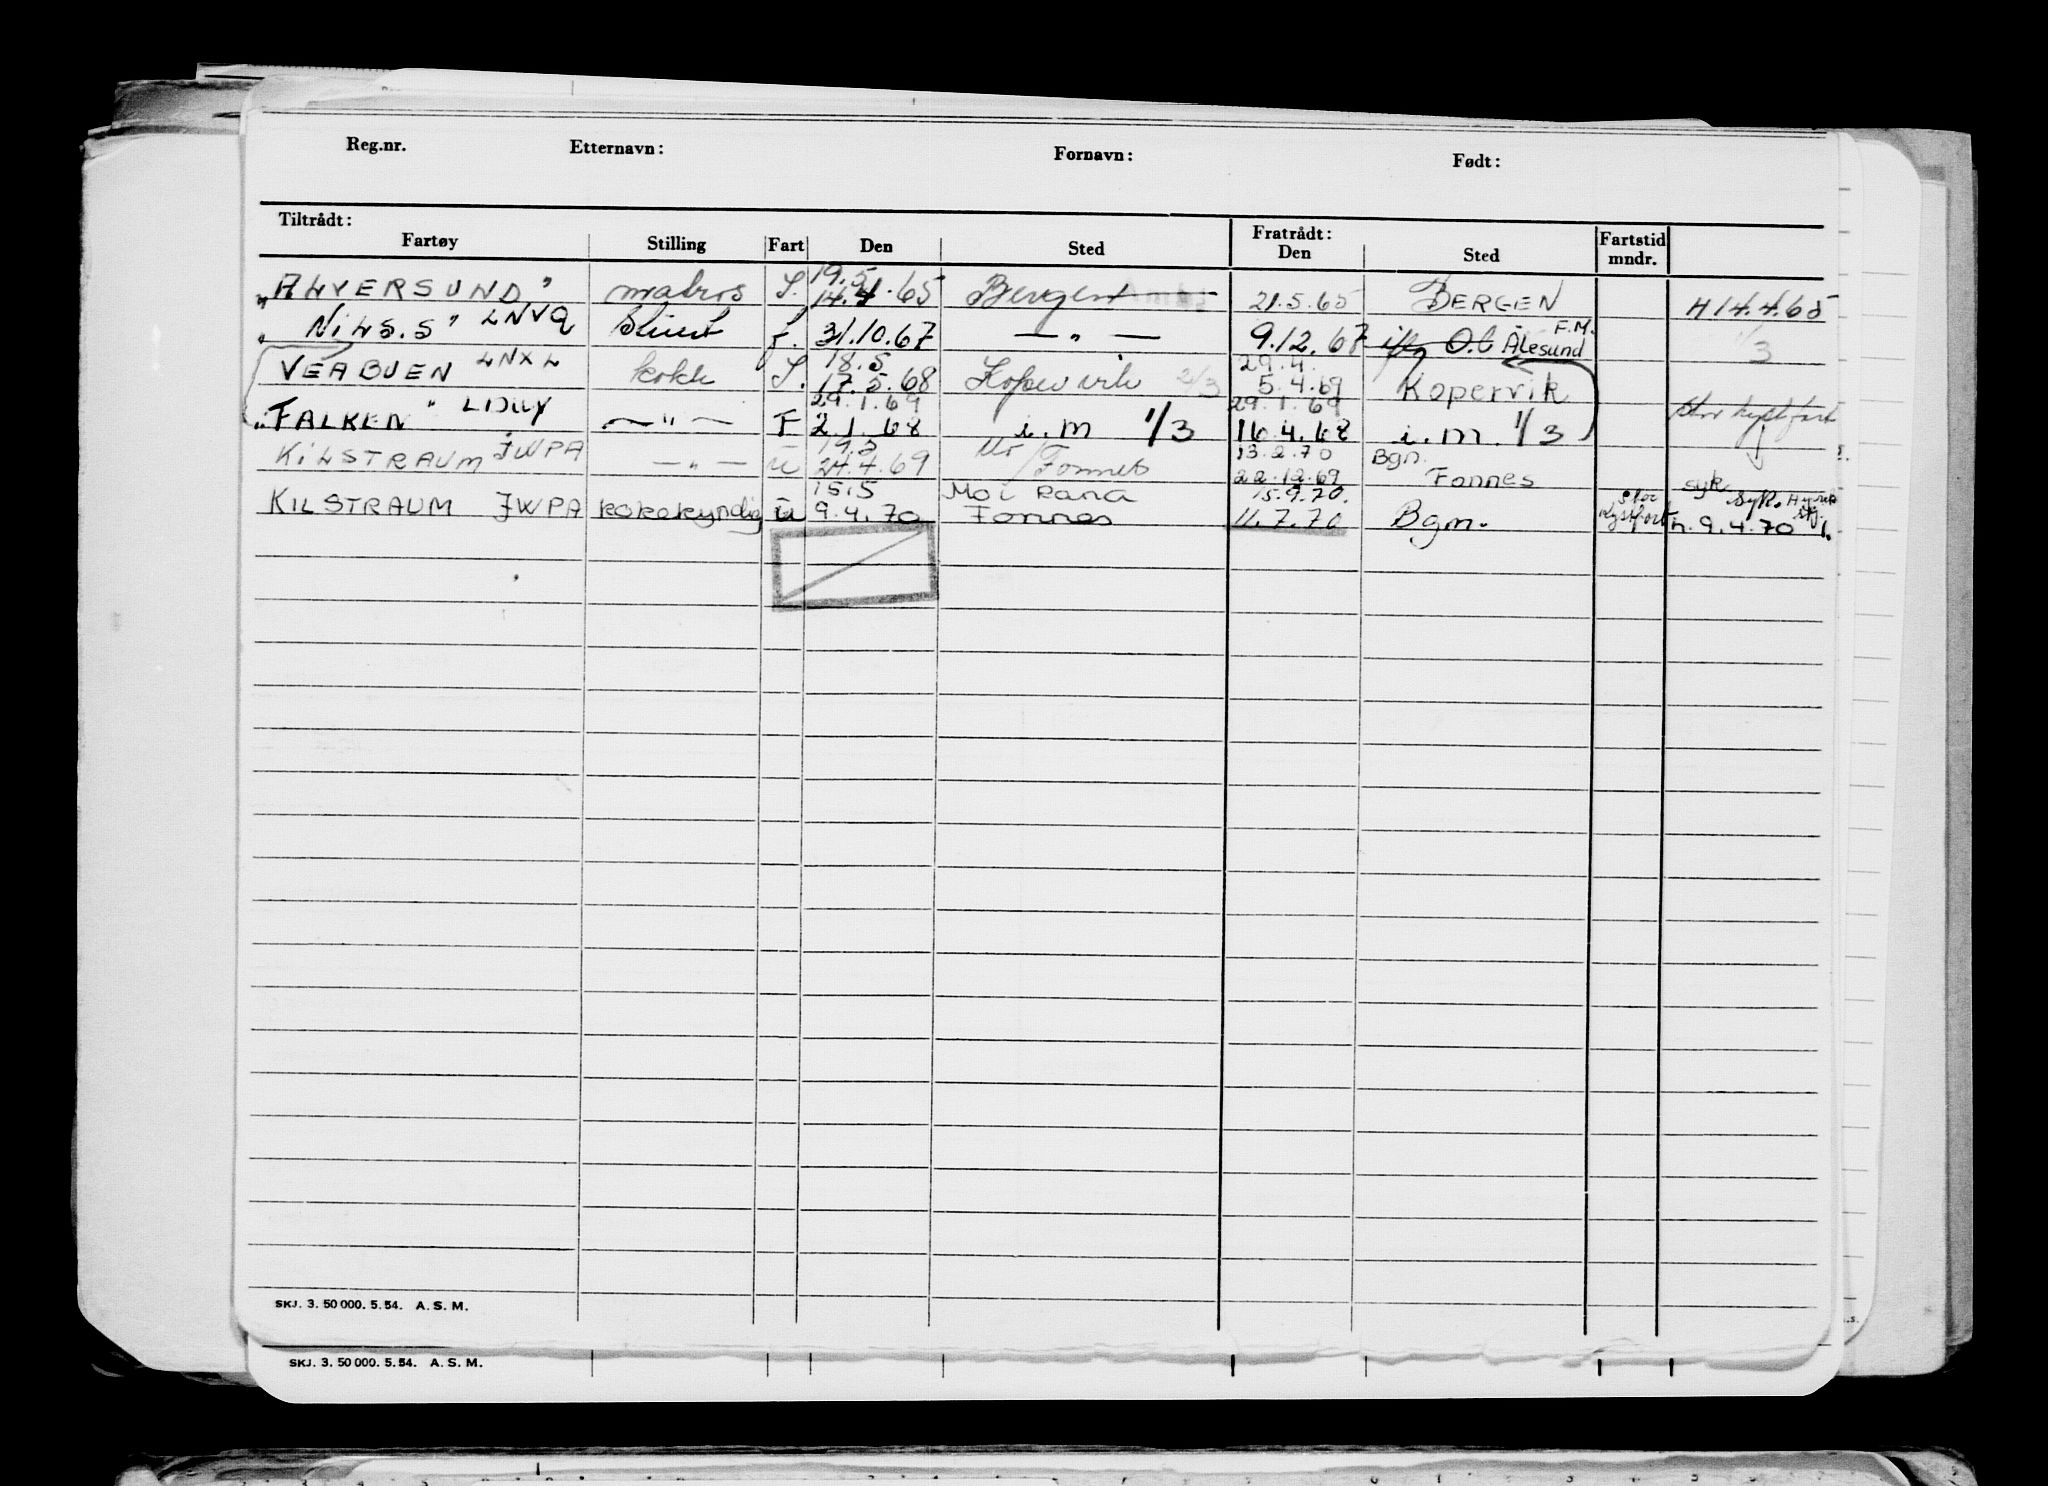 Reg.nr. Etternavn: Fornavn: Født:
Tiltrådt: Fratrådt: Fartstid
Fartøy Stilling Fart Den Sted Den Sted mndr.
19.5
"ALVERSUND" matros S. 14.4.65 Bergen 21.5.65 BERGEN H 14.4.65
" NILS.S" LNVQ Stuert F. 31.10.67 — " — 9.12.67 Ålesund F.M. 1/3
18.5 29.4
VEABUEN LNXL kokk S. 17.5.68 Kopervik 2/3 5.4.69 Kopervik
29.1.69 29.1.69 stor kystfart
"FALKEN" — " — F 2.1.68 i.m 1/3 16.4.68 i.m. 1/3
19.3 13.2.70 Bgn.
KILSTRAUM JWPA — " — U 24.4.69 Fonnes 22.12.69 Fonnes syk
15.5 Mo i Rana 15.9.70. Stor syk. Hyre
KILSTRAUM JWPA kokekyndig U 9.4.70 Fonnes 11.7.70 Bgn. kystfart h. 9.4.70
SKJ. 3. 50 000. 5. 54. A. S. M.
SKJ. 3. 50 000. 5. 54. A. S. M.